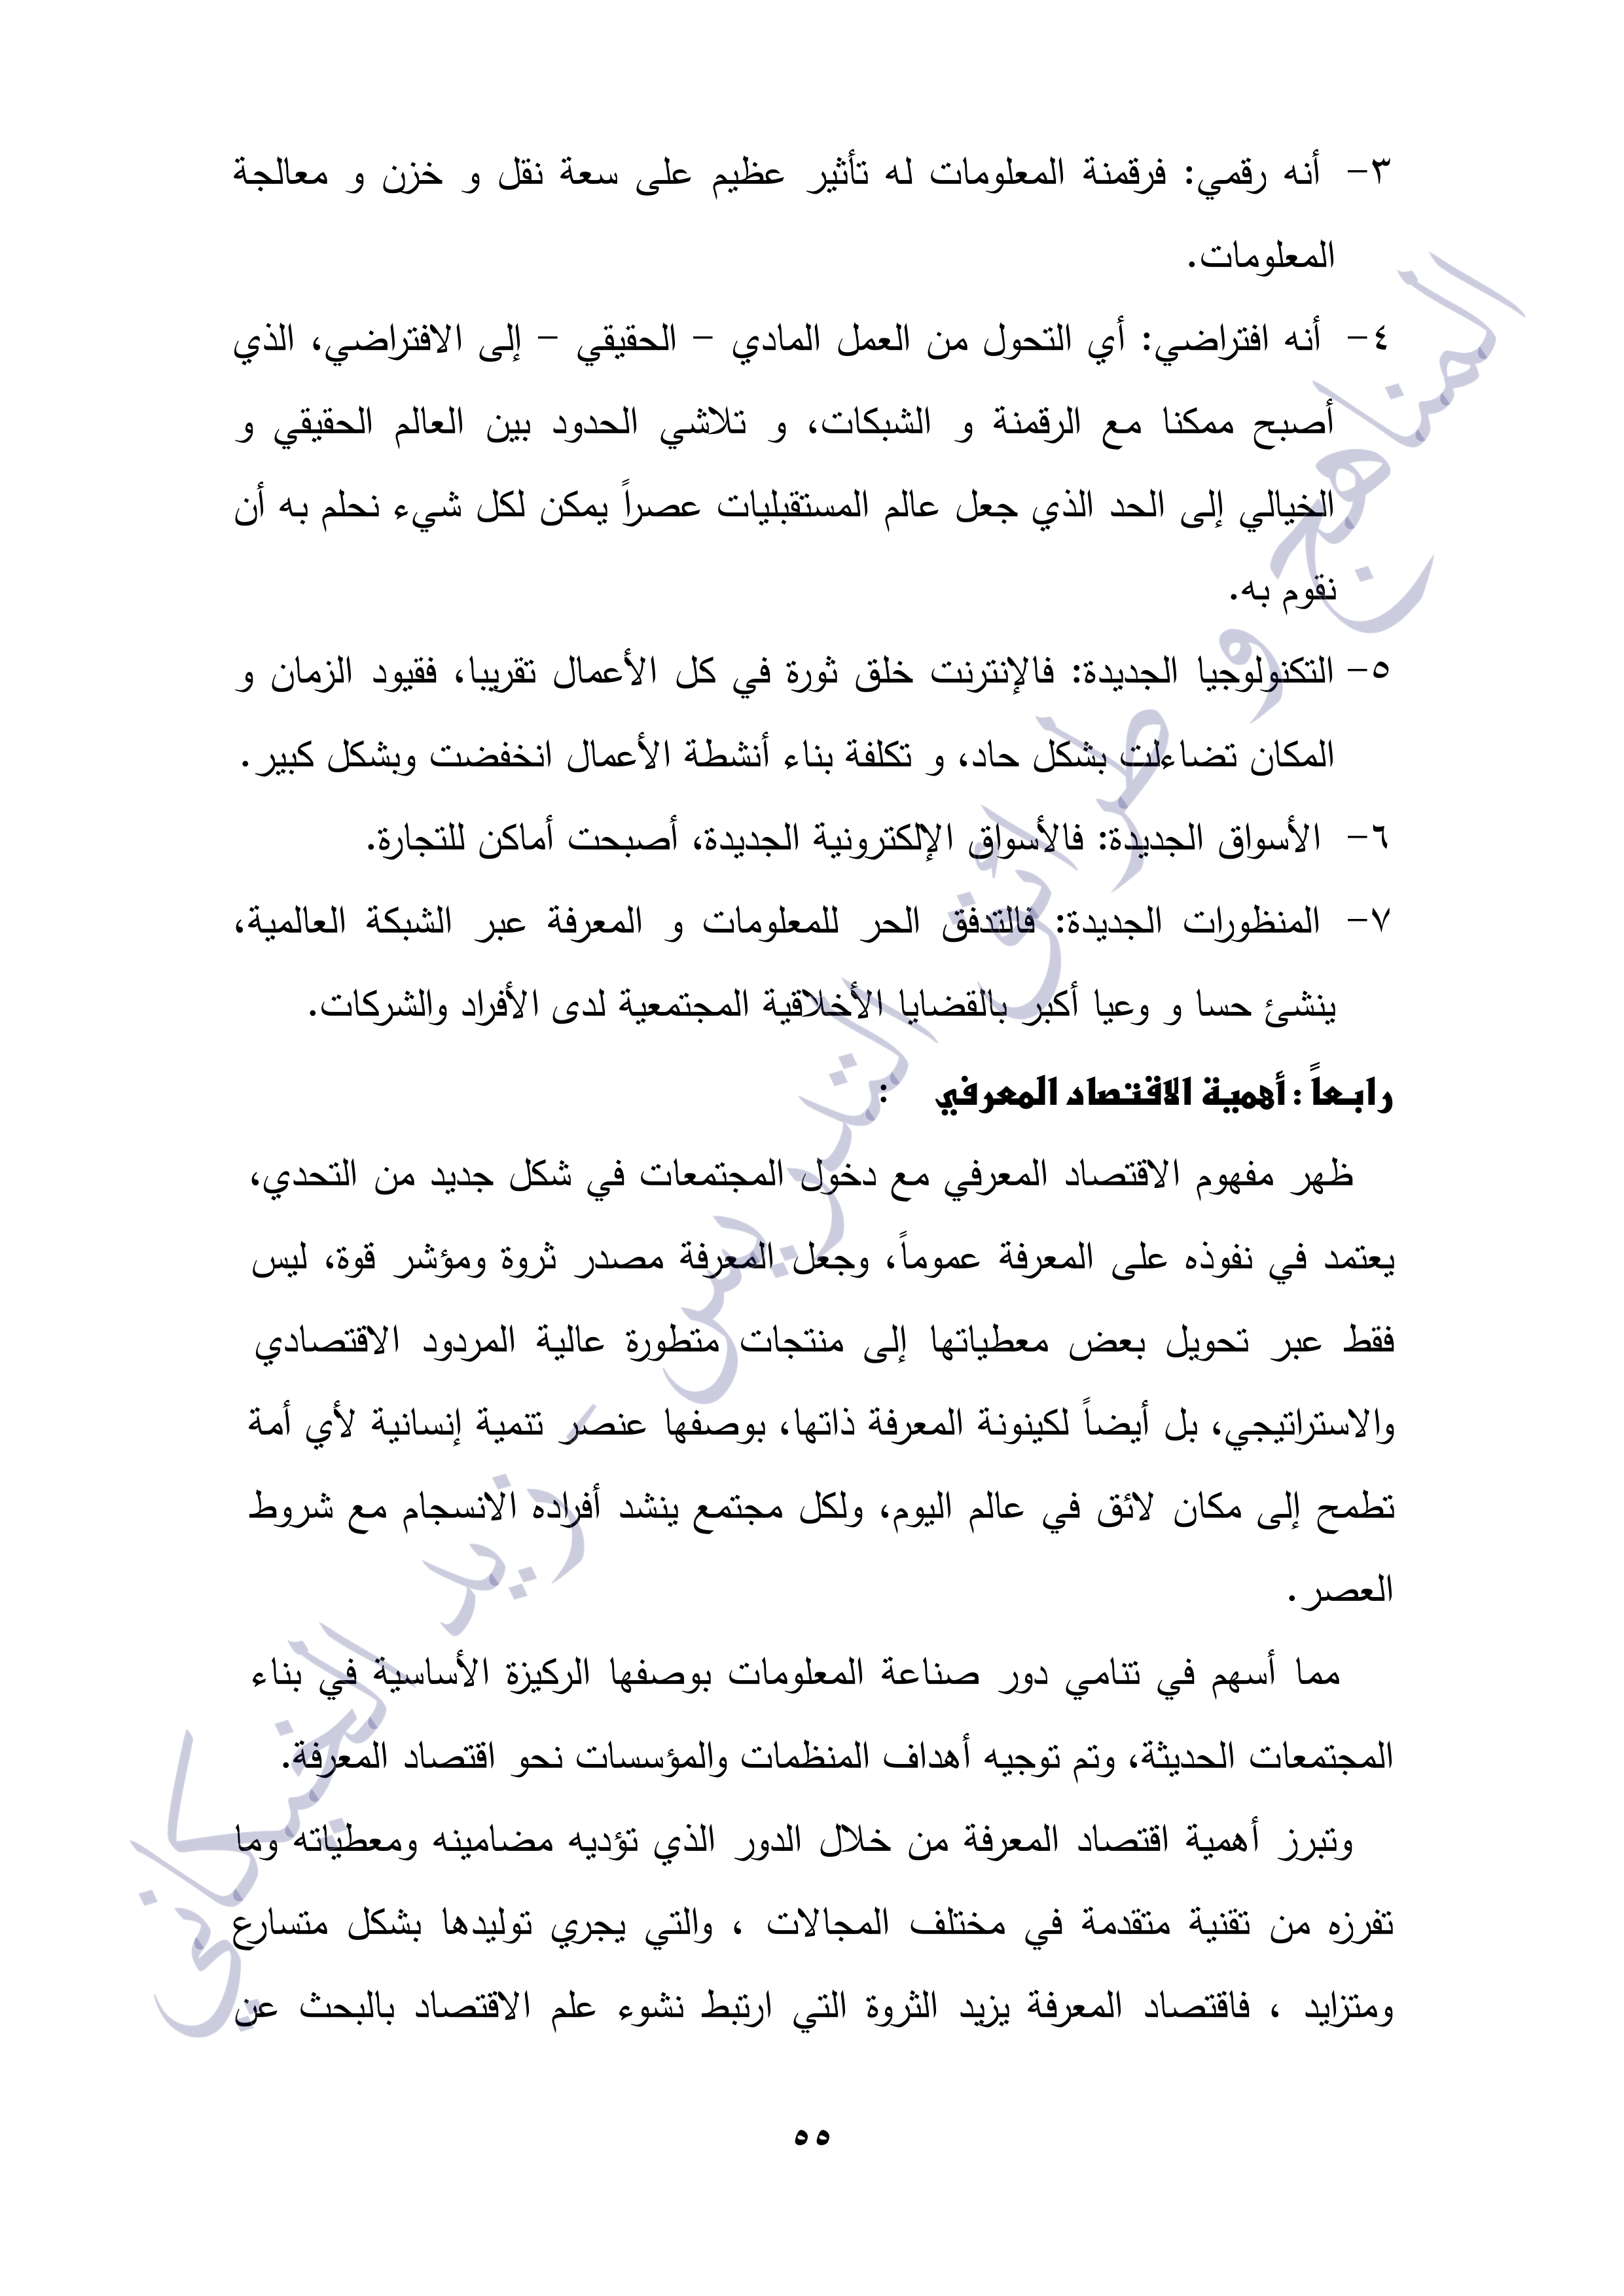 ٣- أنه رقمي: فرقمنة المعلومات له تأثير عظيم على سعة نقل و خزن و معالجة
المعلومات.
٤- أنه افتراضي: أي التحول من العمل المادي – الحقيقي – إلى الافتراضي، الذي
أصبح ممكنا مع الرقمنة و الشبكات، و تلاشي الحدود بين العالم الحقيقي و
الخيالي إلى الحد الذي جعل عالم المستقبليات عصراً يمكن لكل شيء نحلم به أن
نقوم به.
٥- التكنولوجيا الجديدة: فالإنترنت خلق ثورة في كل الأعمال تقريبا، فقيود الزمان و
المكان تضاءلت بشكل حاد، و تكلفة بناء أنشطة الأعمال انخفضت وبشكل كبير.
٦- الأسواق الجديدة: فالأسواق الإلكترونية الجديدة، أصبحت أماكن للتجارة.
٧- المنظورات الجديدة: فالتدفق الحر للمعلومات و المعرفة عبر الشبكة العالمية،
ينشئ حسا و وعيا أكبر بالقضايا الأخلاقية المجتمعية لدى الأفراد والشركات.
رابعاً : أهمية الاقتصاد المعرفي :
ظهر مفهوم الاقتصاد المعرفي مع دخول المجتمعات في شكل جديد من التحدي،
يعتمد في نفوذه على المعرفة عموماً، وجعل المعرفة مصدر ثروة ومؤشر قوة، ليس
فقط عبر تحويل بعض معطياتها إلى منتجات متطورة عالية المردود الاقتصادي
والاستراتيجي، بل أيضاً لكينونة المعرفة ذاتها، بوصفها عنصر تنمية إنسانية لأي أمة
تطمح إلى مكان لائق في عالم اليوم، ولكل مجتمع ينشد أفراده الانسجام مع شروط
العصر.
مما أسهم في تنامي دور صناعة المعلومات بوصفها الركيزة الأساسية في بناء
المجتمعات الحديثة، وتم توجيه أهداف المنظمات والمؤسسات نحو اقتصاد المعرفة.
وتبرز أهمية اقتصاد المعرفة من خلال الدور الذي تؤديه مضامينه ومعطياته وما
تفرزه من تقنية متقدمة في مختلف المجالات ، والتي يجري توليدها بشكل متسارع
ومتزايد ، فاقتصاد المعرفة يزيد الثروة التي ارتبط نشوء علم الاقتصاد بالبحث عن
٥٥
المناهج و طرائق التدريس - زيد الخيكاني